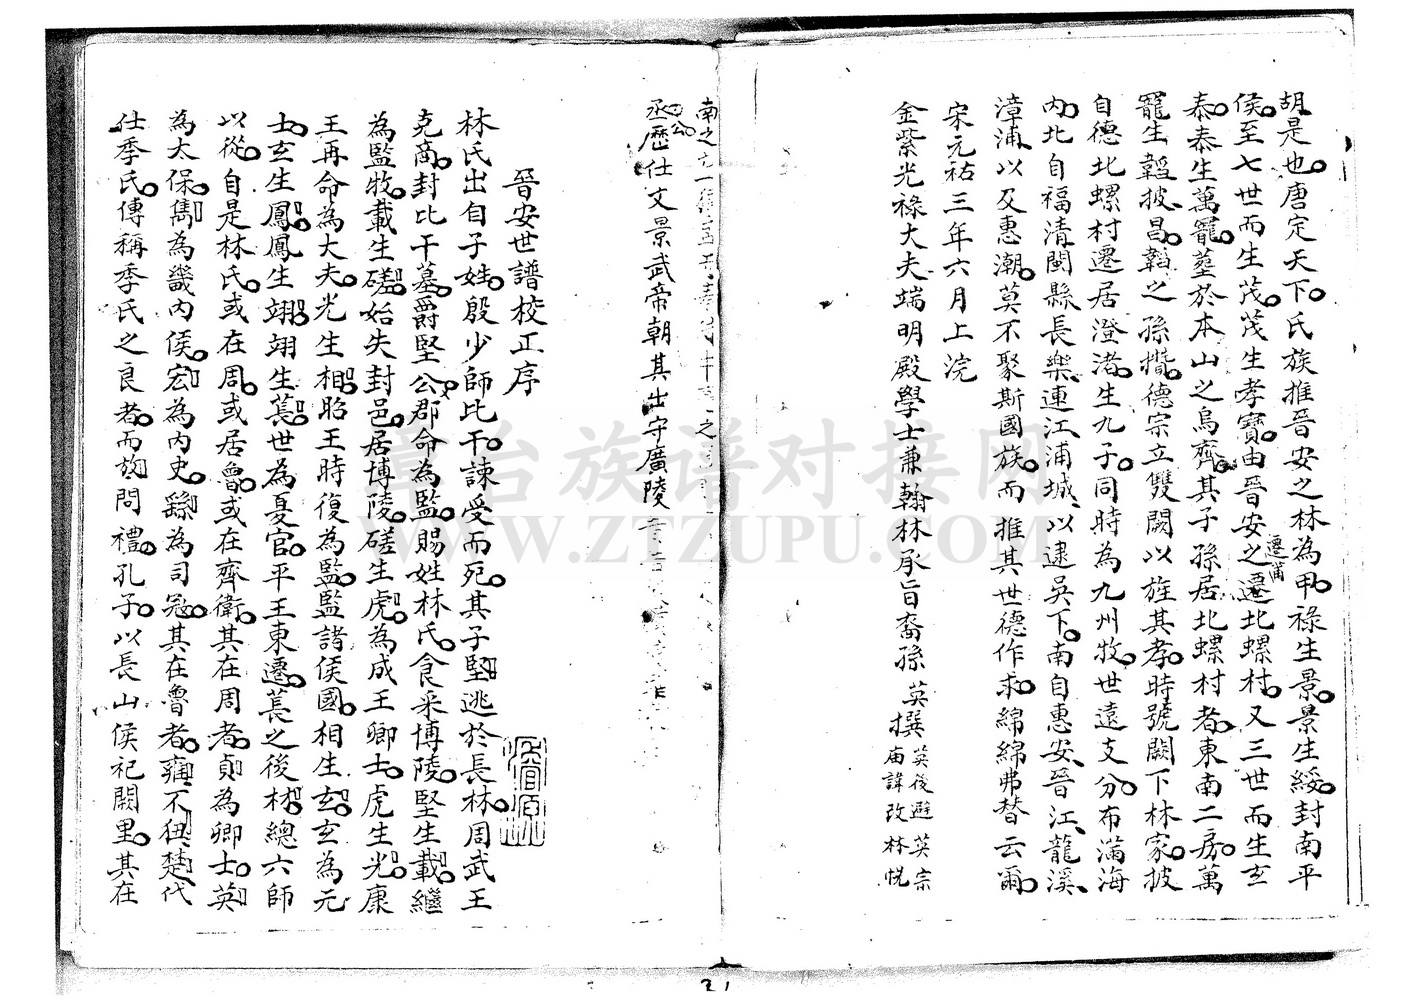 胡是也唐定天下氏族推晉安之林為甲祿生景景生綏封南平
侯至七世而生茂茂生孝寶由晉安之遷北螺村又三世而生玄
遷莆
泰泰生萬寵塟於本山之烏齊其子孫居北螺村者東南二房萬
寵生韜披昌韜之孫攢德宗立雙闕以旌其孝時號闕下林家披
自德北螺村遷居澄渚生九子同時為九州牧世遠支分布滿海
內北自福清閩縣長樂連江浦城以逮吳下南自惠安晉江龍溪
漳浦以及惠潮莫不聚斯國族而推其世德作求綿綿弗替云爾
宋元祐三年六月上浣
金紫光祿大夫端明殿學士兼翰林承旨裔孫英撰
英後避英宗
庙諱改林悅
南之
公
丞歷仕文景武帝朝其出守廣陵
晉安世譜校正序
林氏出自子姓殷少師比干諫受而死其子堅逃於長林周武王
克商封比干墓爵堅公郡命為監賜姓林氏食采博陵堅生載繼
為監牧載生磋始失封邑居博陵磋生虎為成王卿士虎生光康
王再命為大夫光生相昭王時復為監監諸侯國相生玄玄為元
士玄生鳳鳳生翊翊生萇世為憂官平王東遷萇之後材總六師
以從自是林氏或在周或居魯或在齊衛其在周者貞為卿士英
為太保雋為畿內侯宏為內史繇為司寇其在魯者雍不狃楚代
仕季氏傳稱季氏之良者而放問禮孔子以長山侯祀闕里其在
臺台族谱对接网
WWW.ZTZUPU.COM
21